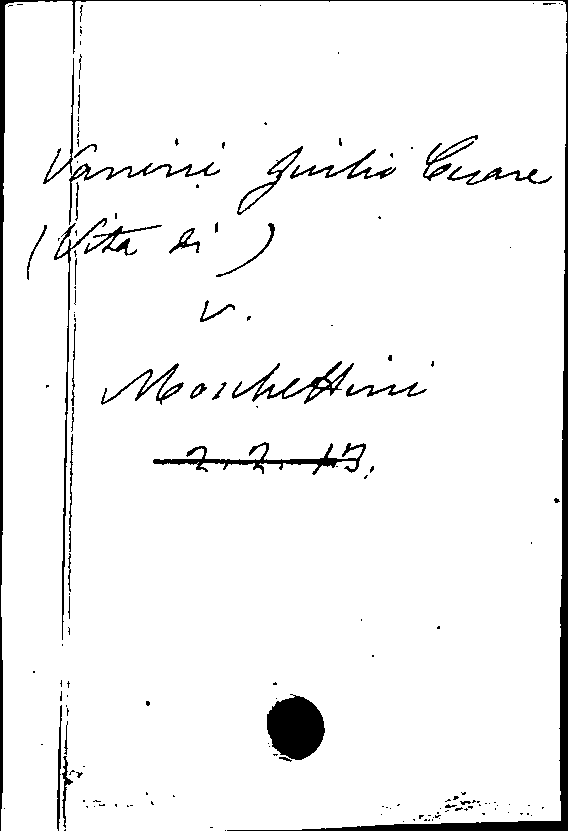 Vanini Giulio Cesare
(Vita di)
v.
Moschettini
2. 2. 13.